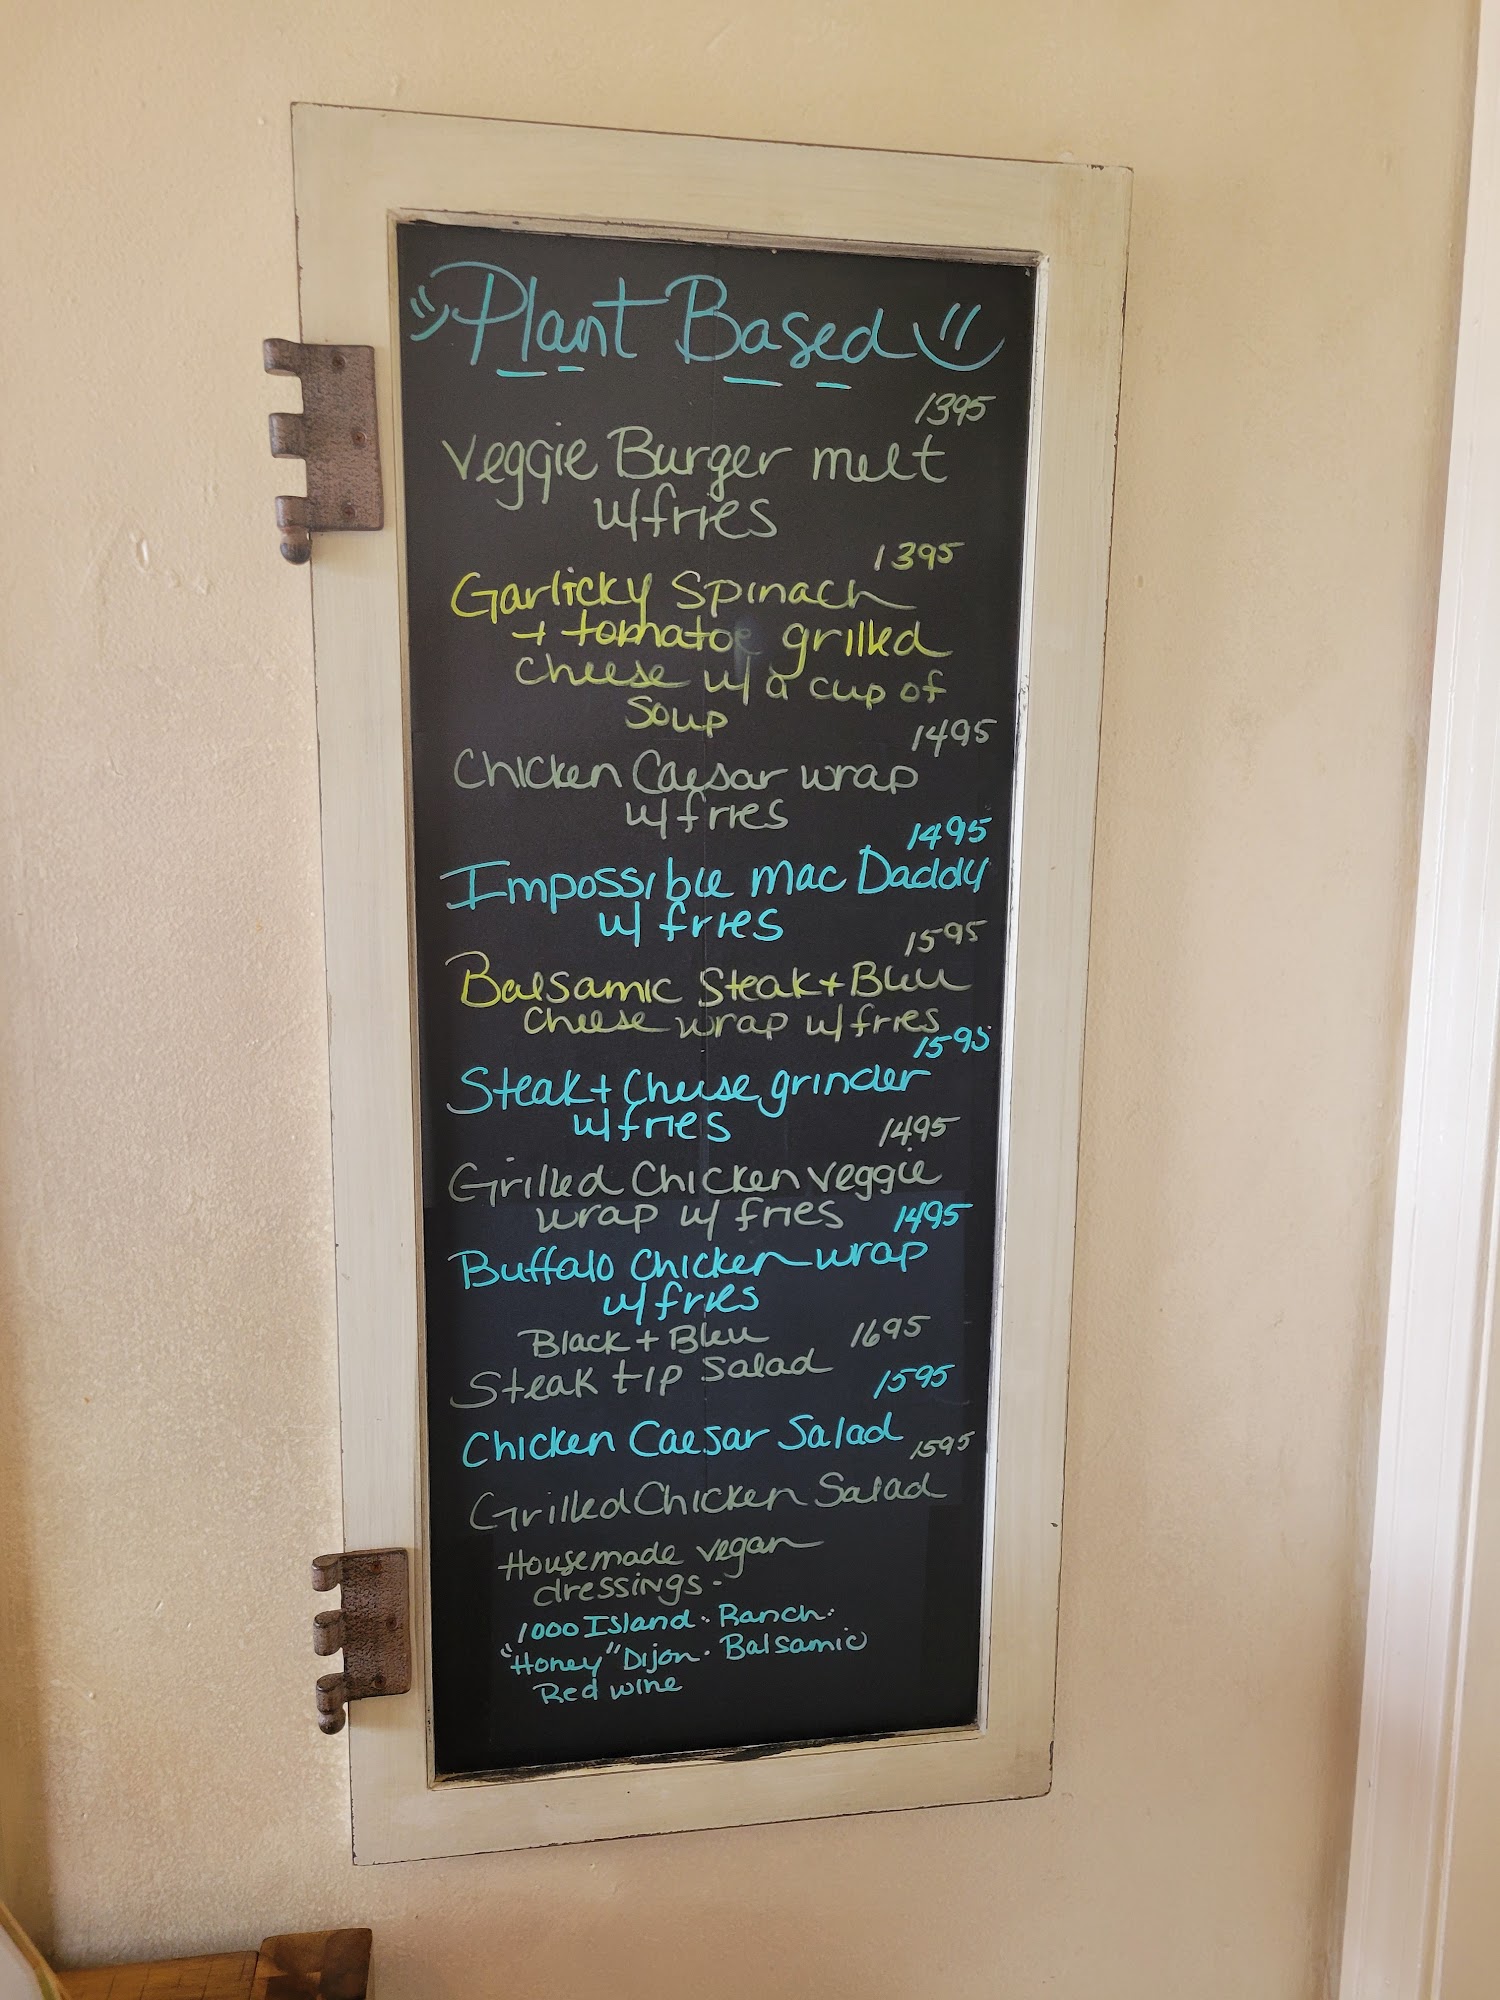 Plant Based
1395
Veggie Burger melt
w/fries
1395
Garlicky Spinach
+ tomatoe grilled
cheese w/ a cup of
Soup
1495
Chicken Caesar wrap
w/fries
1495
Impossible Mac Daddy
w/ fries
1595
Balsamic Steak + Bleu
Cheese wrap w/fries
1595
Steak + Cheese grinder
w/fries
1495
Grilled Chicken veggie
wrap w/ fries
1495
Buffalo Chicken wrap
w/fries
Black + Bleu 1695
Steak tip Salad
1595
Chicken Caesar Salad
1595
Grilled Chicken Salad
Housemade vegan
dressings -
1000 Island · Ranch ·
"Honey" Dijon · Balsamic
Red wine